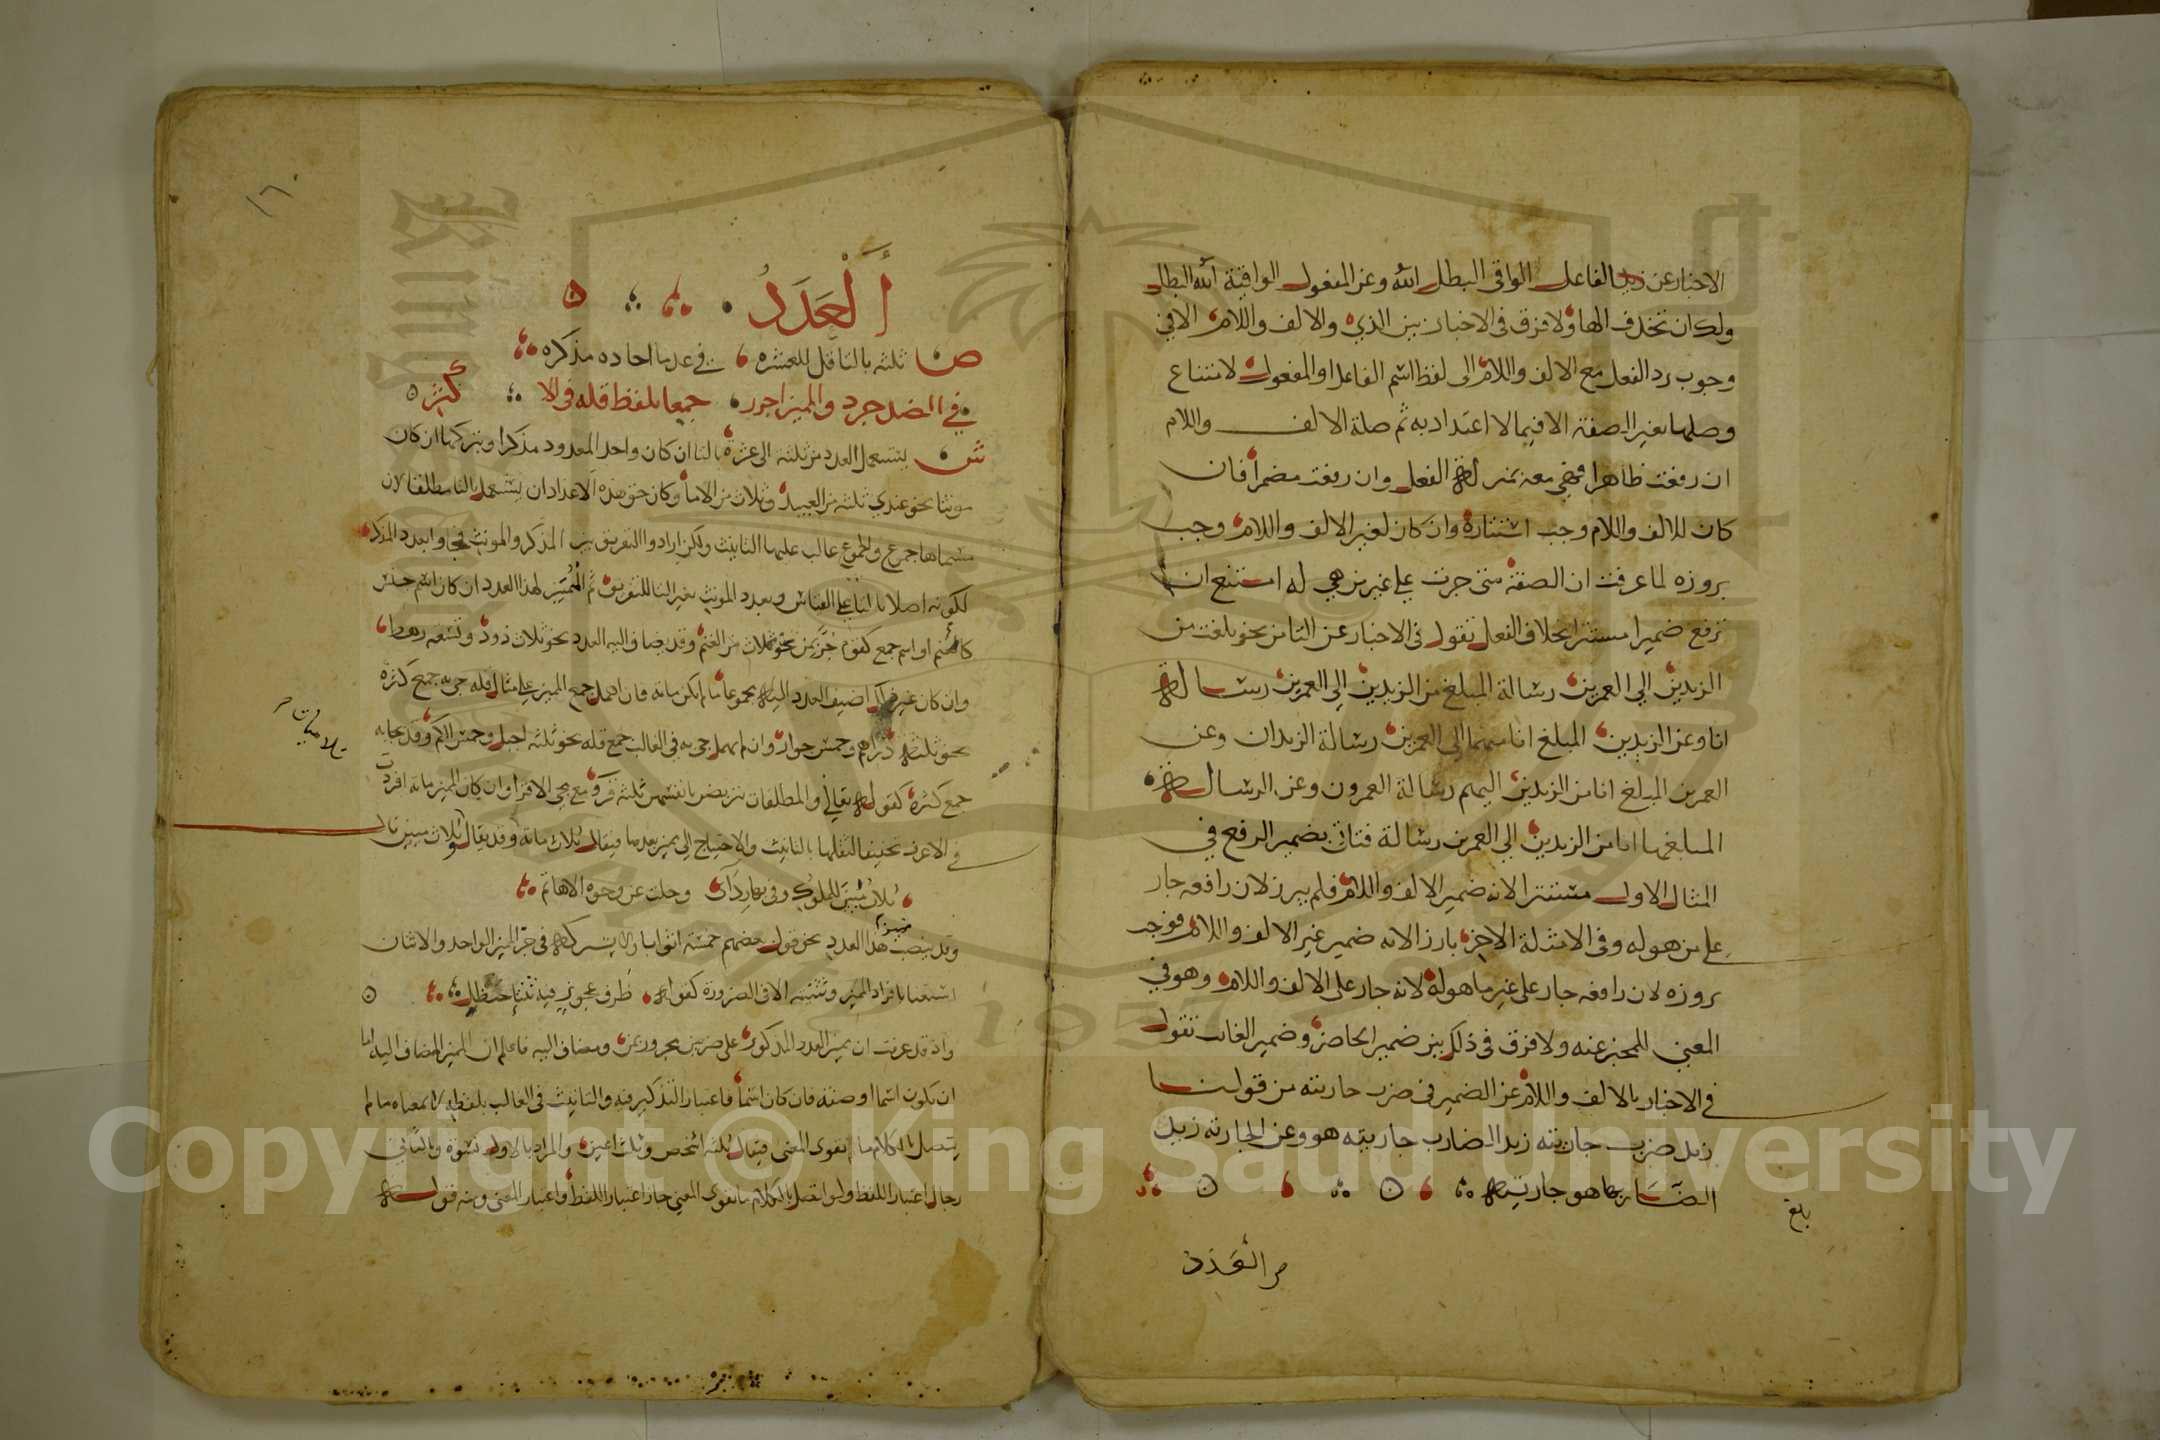 الاخبار عن زيد الفاعل الواقي البطل الله وعن المفعول الواقيه الله البطل
ولك ان تحذف الها ولا فرق في الاخبار بين الذي والالف واللام الا في
وجوب رد الفعل مع الالف واللام الى لفظ اسم الفاعل او المفعول لامتناع
وصلها بغير الصفة الا فيما لا اعتداد به ثم صلة الالف واللام
ان رفعت ظاهرا فهي معه بمنزلة الفعل وان رفعت مضمرا فان
كان للالف واللام وجب استتاره وان كان لغير الالف واللام وجب
بروزه لما عرفت ان الصفة متى جرت على غير من هي له امتنع ان
ترفع ضميرا مستترا بخلاف الفعل تقول في الاخبار عن التا من نحو بلغت من
الزيدين الى العمرين رسالة المبلغ من الزيدين الى العمرين رسالة
انا وعن الزيدين المبلغ انا منهما الى العمرين رسالة الزيدان وعن
العمرين المبلغ انا من الزيدين اليهم رسالة العمرون وعن الرسالة
المبلغها انا من الزيدين الى العمرين رسالة فتاتي بضمير الرفع في
المثال الاول مستترا لانه ضمير الالف واللام فلم يبرز لان رافعه جار
على من هو له وفي الامثلة الاخر بارزا لانه ضمير غير الالف واللام فوجب
بروزه لان رافعه جار على غير ما هو له لانه جار على الالف واللام وهو في
المعنى للمخبر عنه ولا فرق في ذلك بين ضمير الحاضر وضمير الغائب تقول
في الاخبار بالالف واللام عن الضمير في ضرب جاريته من قولنا
زيد ضرب جاريته زيد الضارب جاريته هو وعن الجارية زيد
الضاربها هو جاريته
بلغ
العدد
١٦٠
ألعدد
ص ثلثه بالتا قل للعشره في عد ما احاده مذكره
في الضد جرد والمميز اجرر جمعا بلفظ قله في الاكثر
ش يستعمل العدد من ثلثه الى عشرة بالتا ان كان واحد المعدود مذكرا وبتركها ان كان
مونثا نحو عندي ثلثه من العبيد وثلاث من الاما وكان حق هذه الاعداد ان تستعمل بالتا مطلقا لان
مسماها جموع والجموع غالب عليها التانيث ولكن ارادوا التفريق بين المذكر والمونث فجاوا بعدد المذكر
لكونه اصلا بالتا على القياس وبعدد المونث بغير التا للتفريق ثم المميز لهذا العدد ان كان اسم جنس
كالغنم او اسم جمع كقوم جر بمن نحو ثلاث من الغنم وقد يضاف اليه العدد نحو ثلاث ذود وتسعه رهط
وان كان غير ذلك اضيف العدد اليه مجموعا ما لم يكن مايه فان اهمل جمع المميز على مثال قله جي به جمع كثرة
نحو ثلثة دراهم وخمس جوار وان لم يهمل جي به في الغالب جمع قله نحو ثلثه اجبل وخمس اكم وقد يجا به
جمع كثرة كقوله تعالى والمطلقات يتربصن بانفسهن ثلثة قروء مع مجي الاقرا وان كان المميز مايه افردت
في الاعرف تخفيفا لثقلها بالتانيث والاحتياج الى مميز بعدها فيقال ثلاث مايه وقد يقال ثلاث ميين قال
ثلاث ميين للملوك وفى بها ردائي وجلت عن وجوه الاهاتم
وقد ينصب مميز هذا العدد نحو قول بعضهم خمسة اثوابا ولا يشركه في جر المميز الواحد والاثنان
استغنا بافراد المميز وتثنيته الا في الضرورة كقوله ظرف عجوز فيه ثنتا حنظل
واذ قد عرفت ان مميز العدد المذكور على ضربين مجرور بمن ومضاف اليه فاعلم ان المميز المضاف اليه اما
ان يكون اسما او صفه فان كان اسما فاعتبار التذكير فيه والتانيث في الغالب بلفظه لا بمعناه ما لم
يتصل بالكلام ما يقوى المعنى فيقال ثلثه اشخص وثلث اعين والمراد بالاول نسوة وبالثاني
رجال اعتبارا للفظ ولو اتصل بالكلام ما يقوى المعنى جاز اعتبار اللفظ واعتبار المعنى ومنه قوله
Copyright © King Saud University
1957